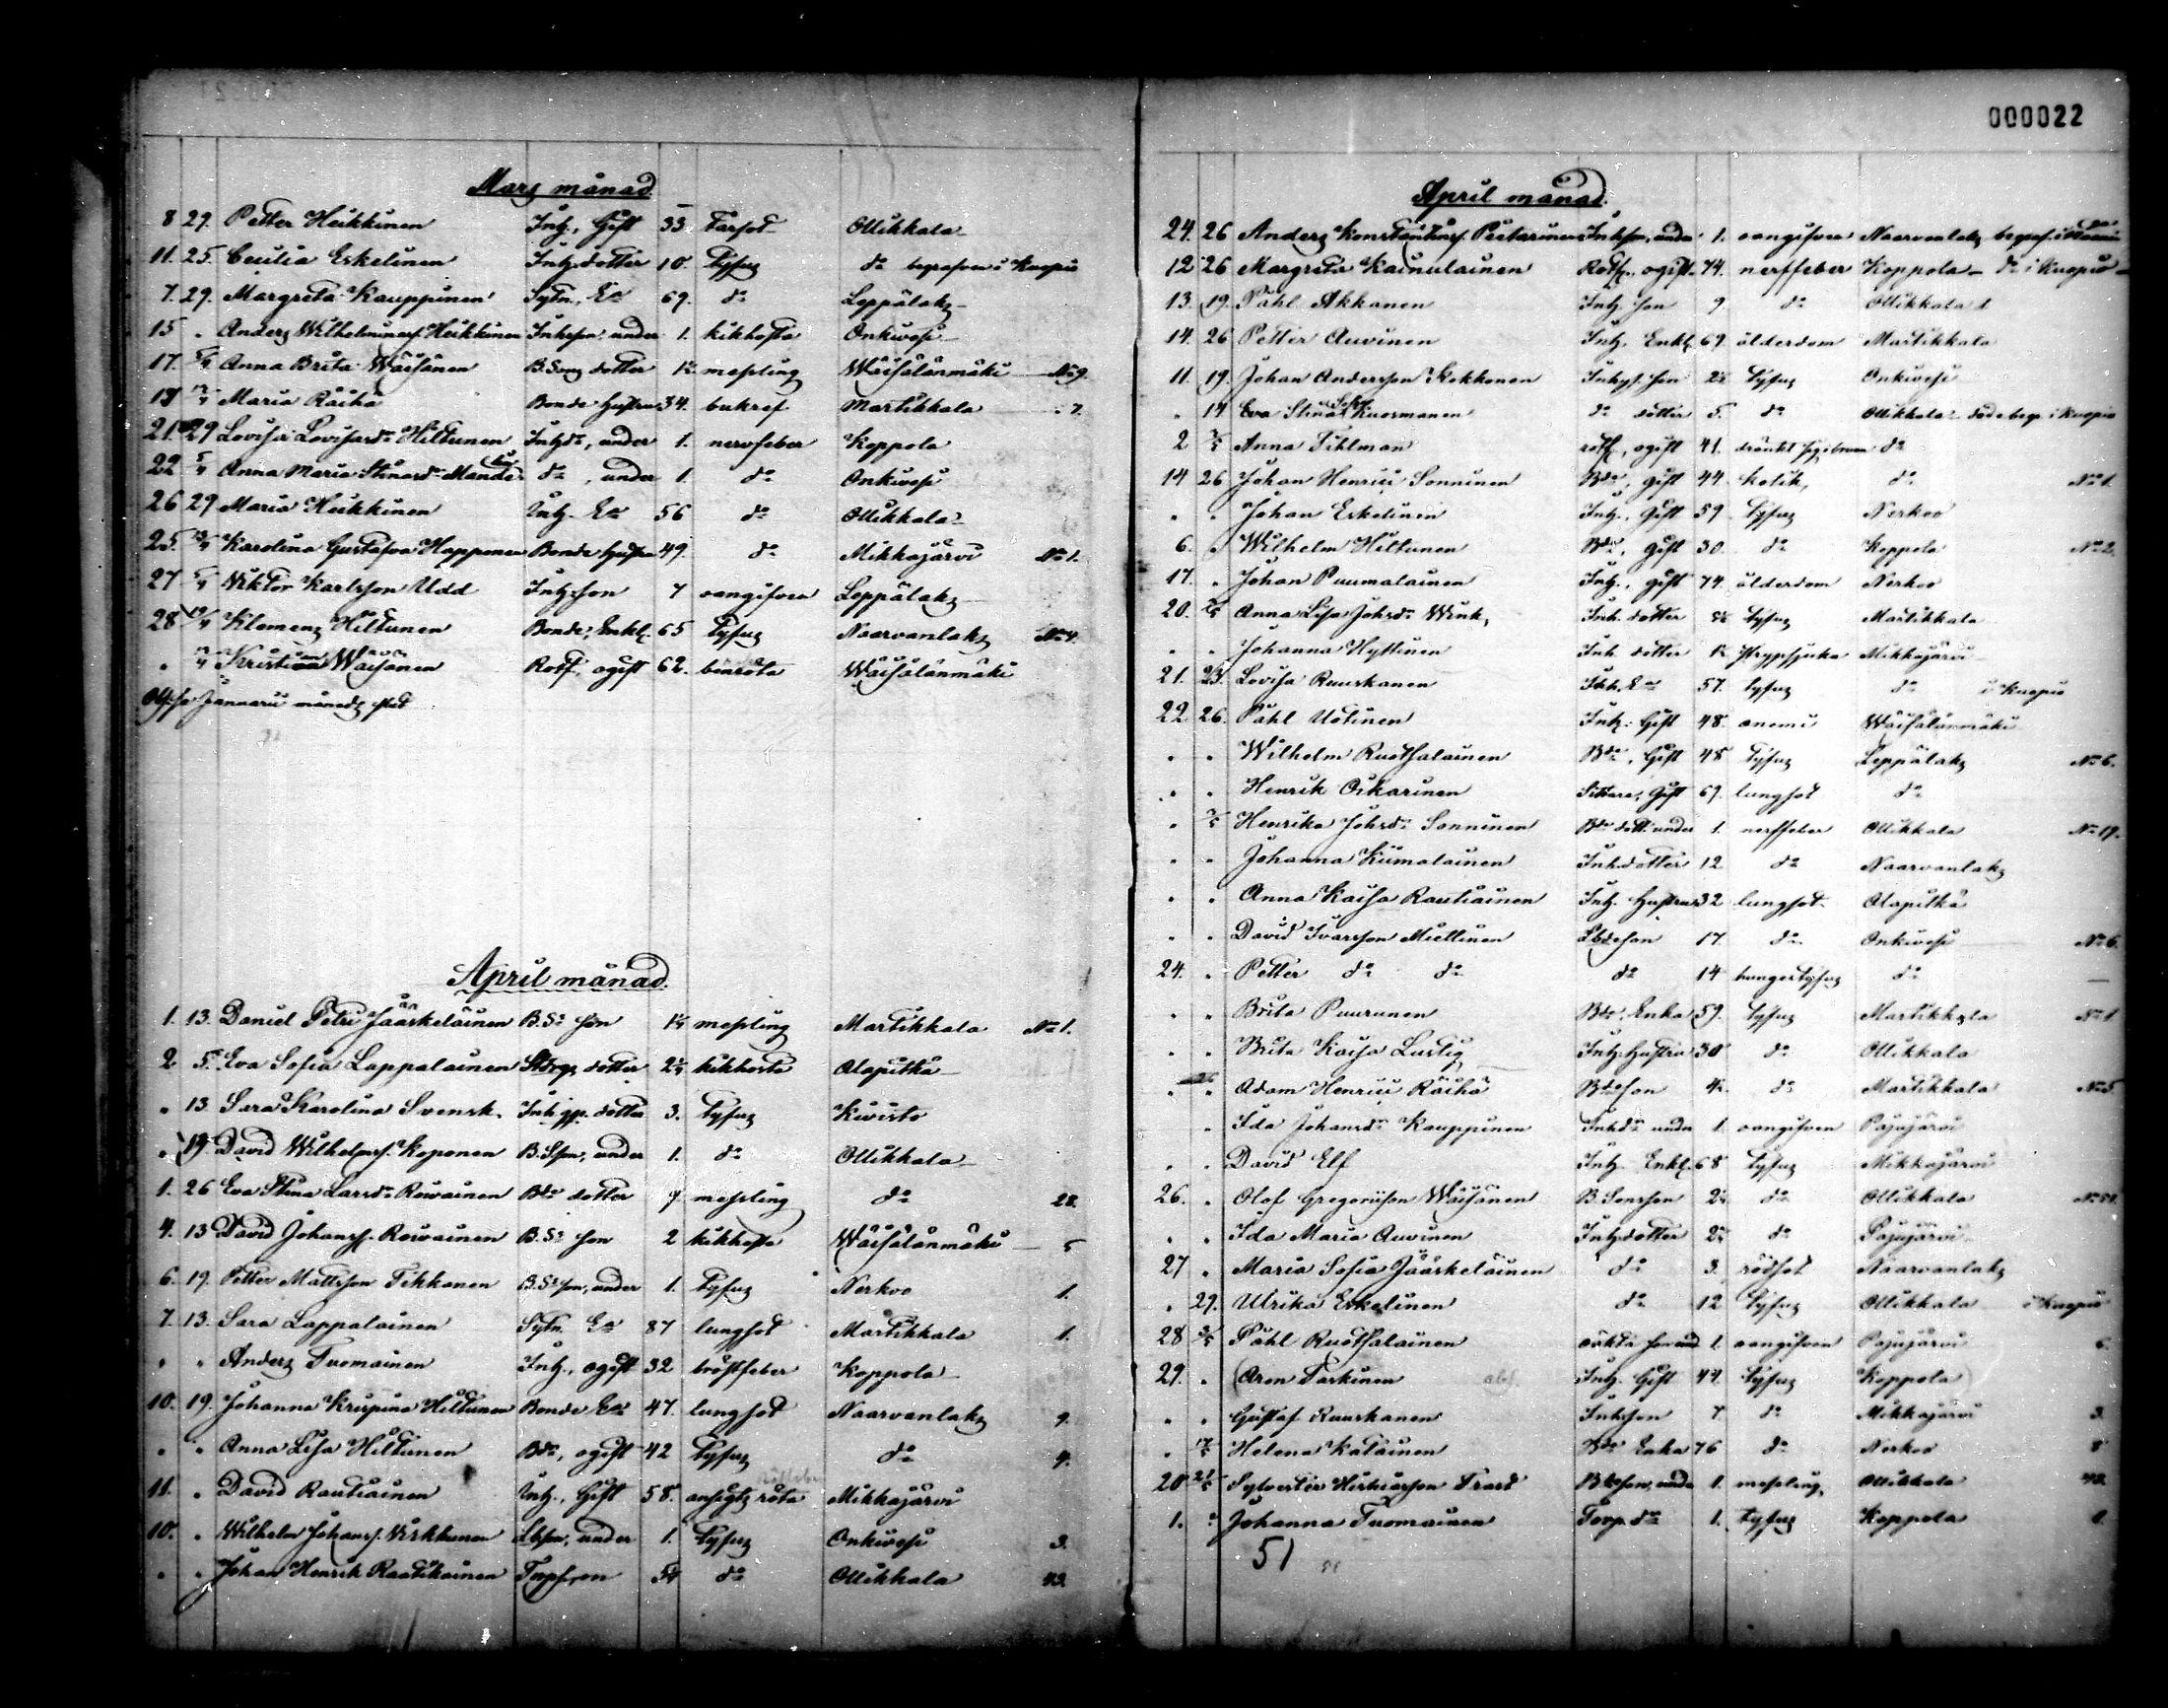 Mars månad
8 29. Petter Heikkinen Inh., Gift 33 Farsot Ollikkala
11. 25. Cecilia Eskelinen Inh. dotter 10. tyfus do begrafven i Kuopio
7. 29. Margreta Kauppinen Sytn., Ea 69. do Leppälaks
15 " Anders Wilhelminas. Heikkinen Inhson, under 1. kikhosta Onkivesi
17. 5/4 Anna Brita Wäisänen B.Sons dotter 1 messling Wäisälänmäki No 9.
17 Maria Räihä Bonde hustru 34. bukref Martikkala " 7.
21. 29 Lovisa Lovisasdr Hiltunen Inhdr, under 1. nervfeber Koppola
22 5/4 Anna Maria Stinasdr do, under 1. do Onkivesi
26 29 Maria Heikkinen Inh. Ea 56 do Ollikkala
25. Karolina Gustafva Happonen Bonde hustru 49. do Mikkajärvi No 1.
27 5/4 Viktor Karlsson Udd Inhson 7 oangifven Leppälaks
28 Klemens Hiltunen Bonde, Enkl. 65 tyfus Naarvanlaks No 4.
" Kristina Wäisänen Rotf., ogift 62. benröta Wäisälänmäki
Januarii månads slut
April månad.
1. 13. Daniel Petri Jääskeläinen B.Sn son 1 messling Martikkala No 1.
2 5. Eva Sofia Lappalainen dotter 2 kikhosta Alapitkä
" 13. Sara Karolina Svensk. Inh. dotter 3. tyfus Kivistö
" 19. David Wilhelmss. Koponen B.Sson, under 1. do Ollikkala
1. 26 Eva Stina Larsdr Roivainen Bde dotter 9 messling do 28.
4. 13 David Johanss. Roivainen B.Sn son 2 kikhosta Wäisälänmäki 5
6. 19. Petter Mattsson Tikkanen B.Sn son, under 1. tyfus Nerkoo 1.
7. 13. Sara Lappalainen Sytn. Ea 87 lungsot Martikkala 1.
" " Anders Tuomainen Inh., ogift 32 bröstfeber Koppola
10. 19. Johanna Krispina Hiltunen Bonde Ea 47. lungsot Naarvanlaks 9.
" " Anna Lisa Hiltunen Bde, ogift 42 tyfus do 4.
11. " David Rautiainen Inh., Gift 58. ansigts röta Mikkajärvi
10. " Wilhelm Johanss. Virkkunen Lbson, under 1. tyfus Onkivesi 3.
" " Johan Henrik Raatikainen Torpson do Ollikkala 43.
000022
April månad.
24. 26 Anders Konstantinss. Pietarinen Inhson, under 1. oangifven Naarvanlaks begraf. i
12 26 Margreta Kainulainen Rotf., ogift 74. nerffeber Koppola do i Kuopio
13. 19. Påhl Akkanen Inh. son 9. do Ollikkala
14. 26 Petter Auvinen Inh. Enkl. 69. ålderdom Martikkala
11. 19. Johan Andersson Kokkonen Inhys. son 2 tyfus Onkivesi
" 14 Eva Stina Sofia Kuosmanen do dotter 5. do Ollikkala död o begr. i Kuopio
2 Anna Tihlman rotf., ogift 41. dränkt sig i brunn do
14 26 Johan Henrici Sonninen Bde, gift 44. kolik, do No 1.
" " Johan Eskelinen Inh., Gift 59. tyfus Nerkoo
6. " Wilhelm Hiltunen Bde, gift 30. do Koppola No 2.
17. " Johan Puumalainen Inh., gift 74. ålderdom Nerkoo
20. Anna Lisa Johsdr Wink, Inh. dotter tyfus Martikkala
" " Johanna Hyttinen Inh. dotter 1 strypsjuka Mikkajärvi
21. 23. Lovisa Ruuskanen Inh. Ea 57. tyfus do i Kuopio
22. 26. Påhl Uotinen Inh. Gift 48. anemi Wäisälänmäki
" " Wilhelm Ruotsalainen Bde, Gift 48 tyfus Leppälaks No 6.
" " Henrik Oskarinen Gift 69. lungsot do
" Henrika Johsdr Sonninen Bde dott. under 1. nerffeber Ollikkala No 19.
" " Johanna Kiimalainen Inhdotter 12 do Naarvanlaks
" " Anna Kaisa Rautiainen Inh. hustru 32 lungsot Alapitkä
" " David Ivarsson Miettinen Lbdeson 17. do Onkivesi No 6.
24. " Petter do do do 14 hungertyfus do
" " Brita Puurunen Bde Enka 59. tyfus Martikkala No 1
" " Brita Kaisa Lustig Inh. hustru 30 do Ollikkala
" " Adam Henrici Räihä Bdeson 4 do Martikkala No 5
" Ida Johansdr Kauppinen Inhdr under 1. oangifven Pajujärvi
" " David Elf Inh. Enkl. 68 tyfus Mikkajärvi
26. " Olof Gregoriison Wäisänen B.Sonsson 2 do Ollikkala
" " Ida Maria Auvinen Inhdotter 2 do Pajujärvi
27 " Maria Sofia Jääskeläinen do 3. rödsot Naarvanlaks
" 29. Ulrika Eskelinen do 12 tyfus Ollikkala i Kuopio
28 Påhl Ruotsalainen oäkta son und 1. oangifven Pajujärvi 6.
29. " (Aron Tarkinen Inh. Gift 44. tyfus Koppola)
" " Gustaf Ruuskanen Inhson 7 do Mikkajärvi 3.
" Helena Katainen Bde Enka 76 do Nerkoo 8
20 Sylvester Trast Bdeson, under 1. messling, Ollikkala
1. " Johanna Tuomainen Torp. dr 1. tyfus Koppola 1.
51